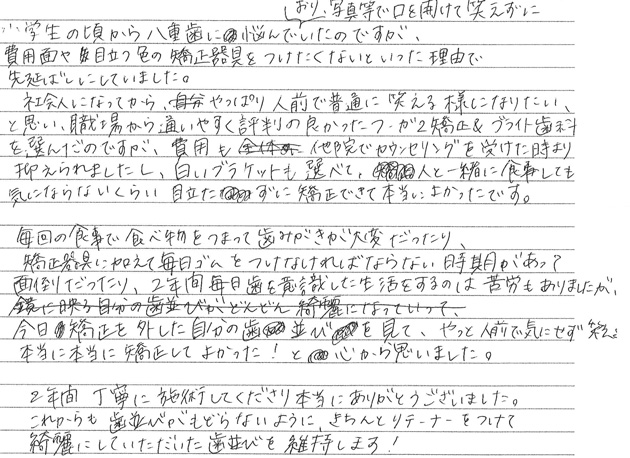 おり、写真等で口を開けて笑えずに
小学生の頃から八重歯に悩んでいたのですが、
費用面や目立つ色の矯正器具をつけたくないといった理由で
先延ばしにしていました。
社会人になってから、やっぱり人前で普通に笑える様になりたい、
と思い、職場から通いやすく評判の良かったつつが矯正&ブライト歯科
を選んだのですが、費用も他院でカウンセリングを受けた時より
抑えられましたし、白いブラケットも選べて、人と一緒に食事しても
気にならないくらい目立たずに矯正できて本当によかったです。
毎回の食事で食べ物をつまって歯みがきが大変だったり、
矯正器具に加えて毎日ゴムとつけなければならない時期があって
面倒だったり、2年間毎日歯を意識した生活をするのは苦労もありましたが、
鏡に映る自分の歯並びがどんどん綺麗になっていって、
今日矯正を外した自分の歯並びを見て、やっと人前で気にせず笑え
本当に本当に矯正してよかった!と心から思いました。
2年間丁寧に施術してくださり本当にありがとうございました。
これからも歯並びがもどらないように、きちんとリテーナーをつけて
綺麗にしていただいた歯並びを維持します!